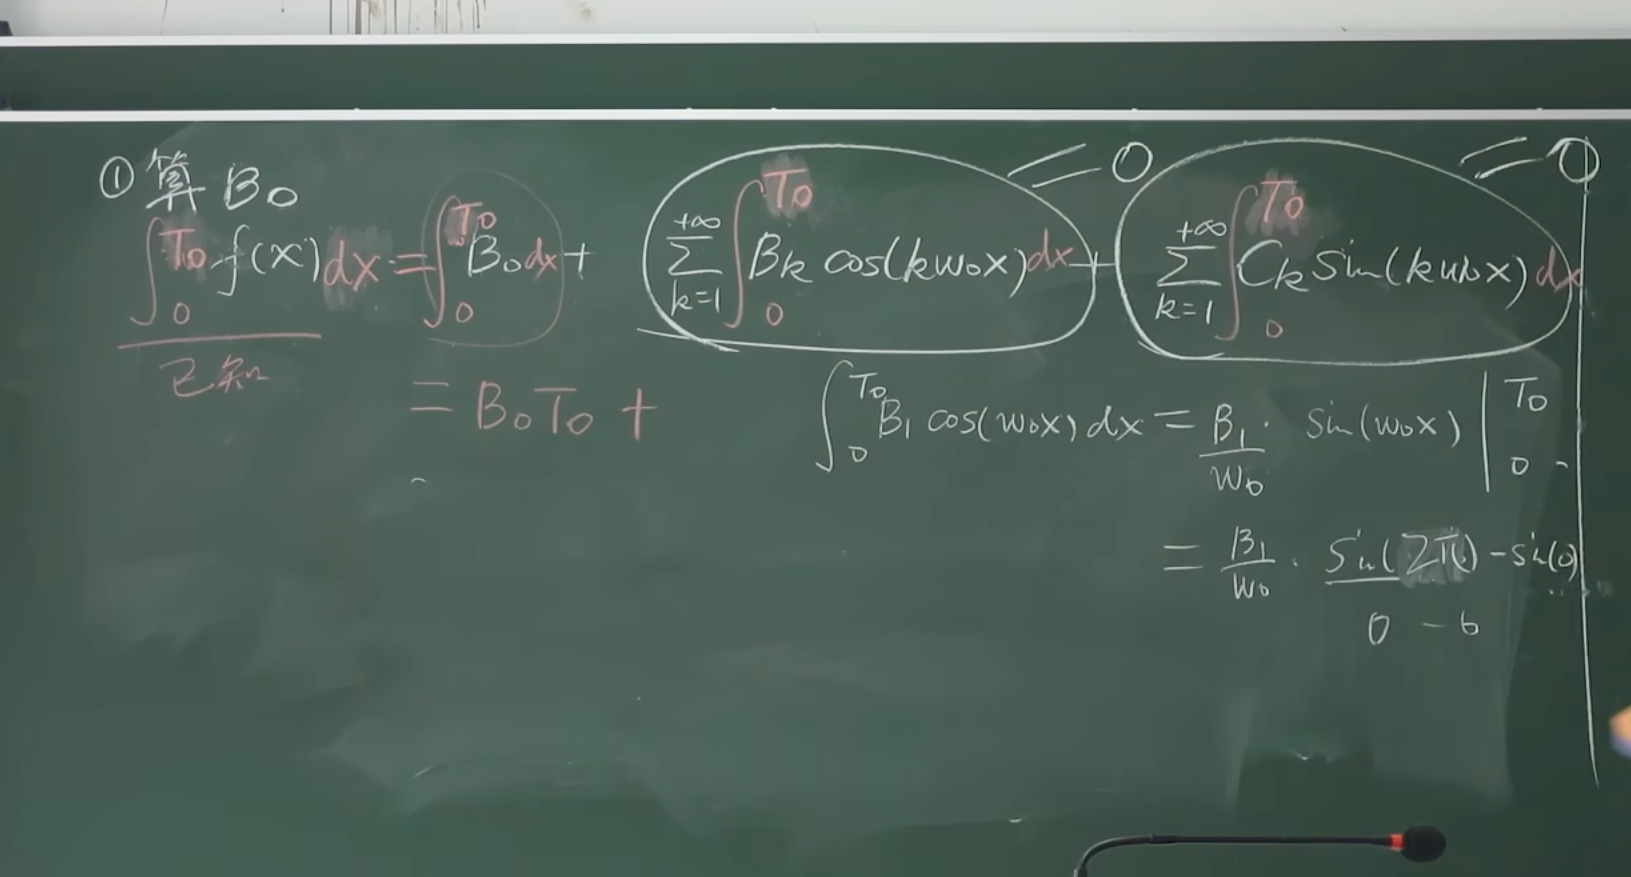 ① 算 B₀
∫₀^T₀ f(x) dx = ∫₀^T₀ B₀ dx + ∑_{k=1}^{+∞} ∫₀^T₀ B_k cos(kw₀x) dx + ∑_{k=1}^{+∞} ∫₀^T₀ C_k sin(kw₀x) dx
= 0
= 0
已知
= B₀T₀ +
∫₀^T₀ B₁ cos(w₀x) dx = B₁/w₀ · sin(w₀x) |₀^T₀
= B₁/w₀ · sin(2π) - sin(0)
0 - 0